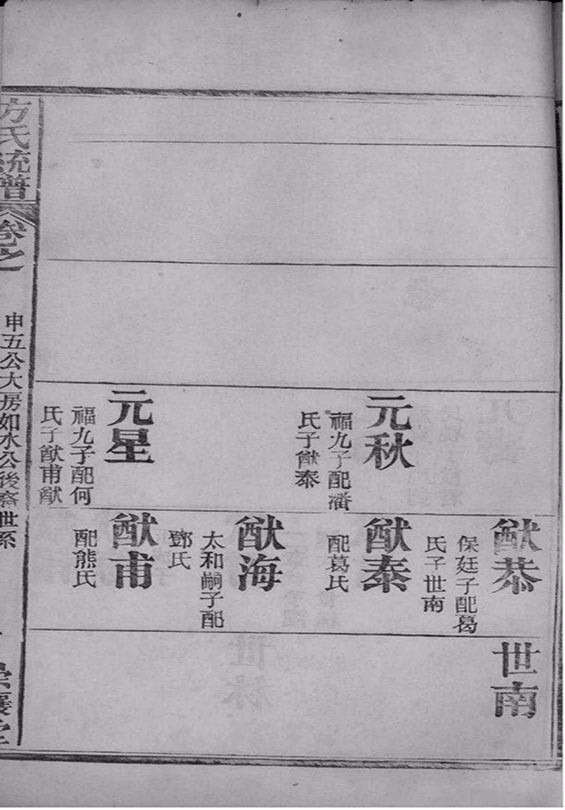 猷恭
保廷子配葛
氏子世南
世南
元秋
福九子配潘
氏子猷泰
猷泰
配葛氏
猷海
太和嗣子配
鄧氏
元星
福九子配何
氏子猷甫猷
猷甫
配熊氏
方氏統譜
卷之
申五公大房如水公後裔世系